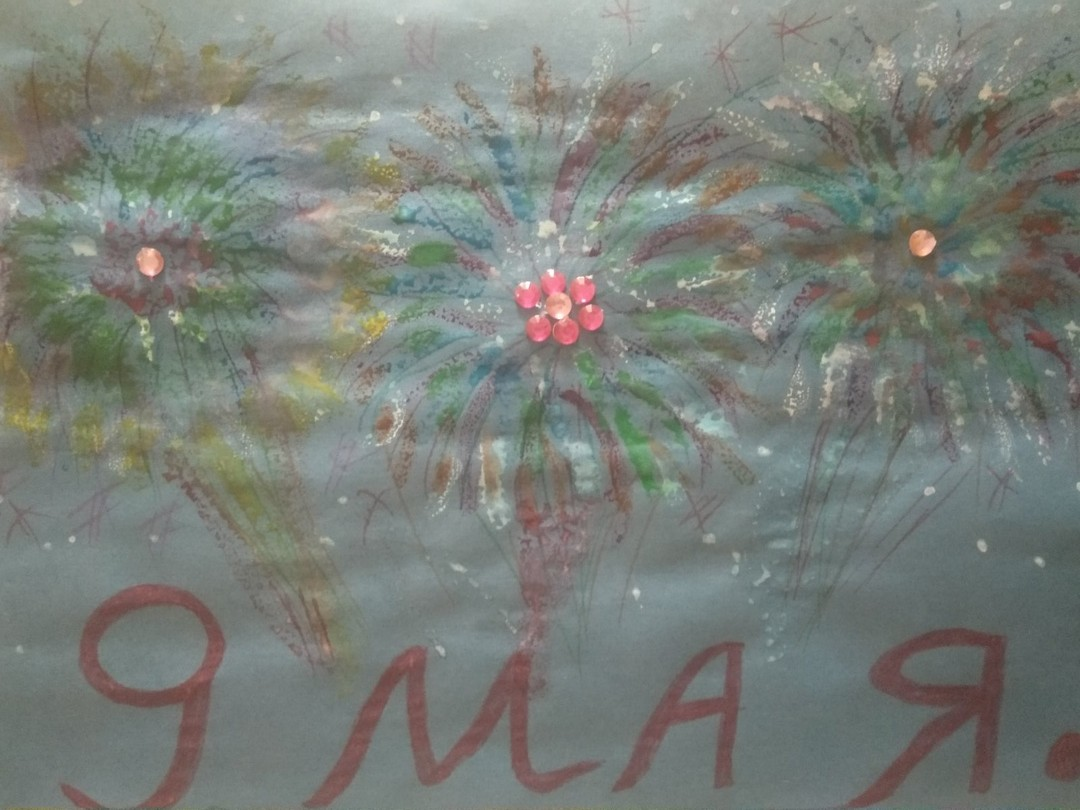 9 МАЯ.